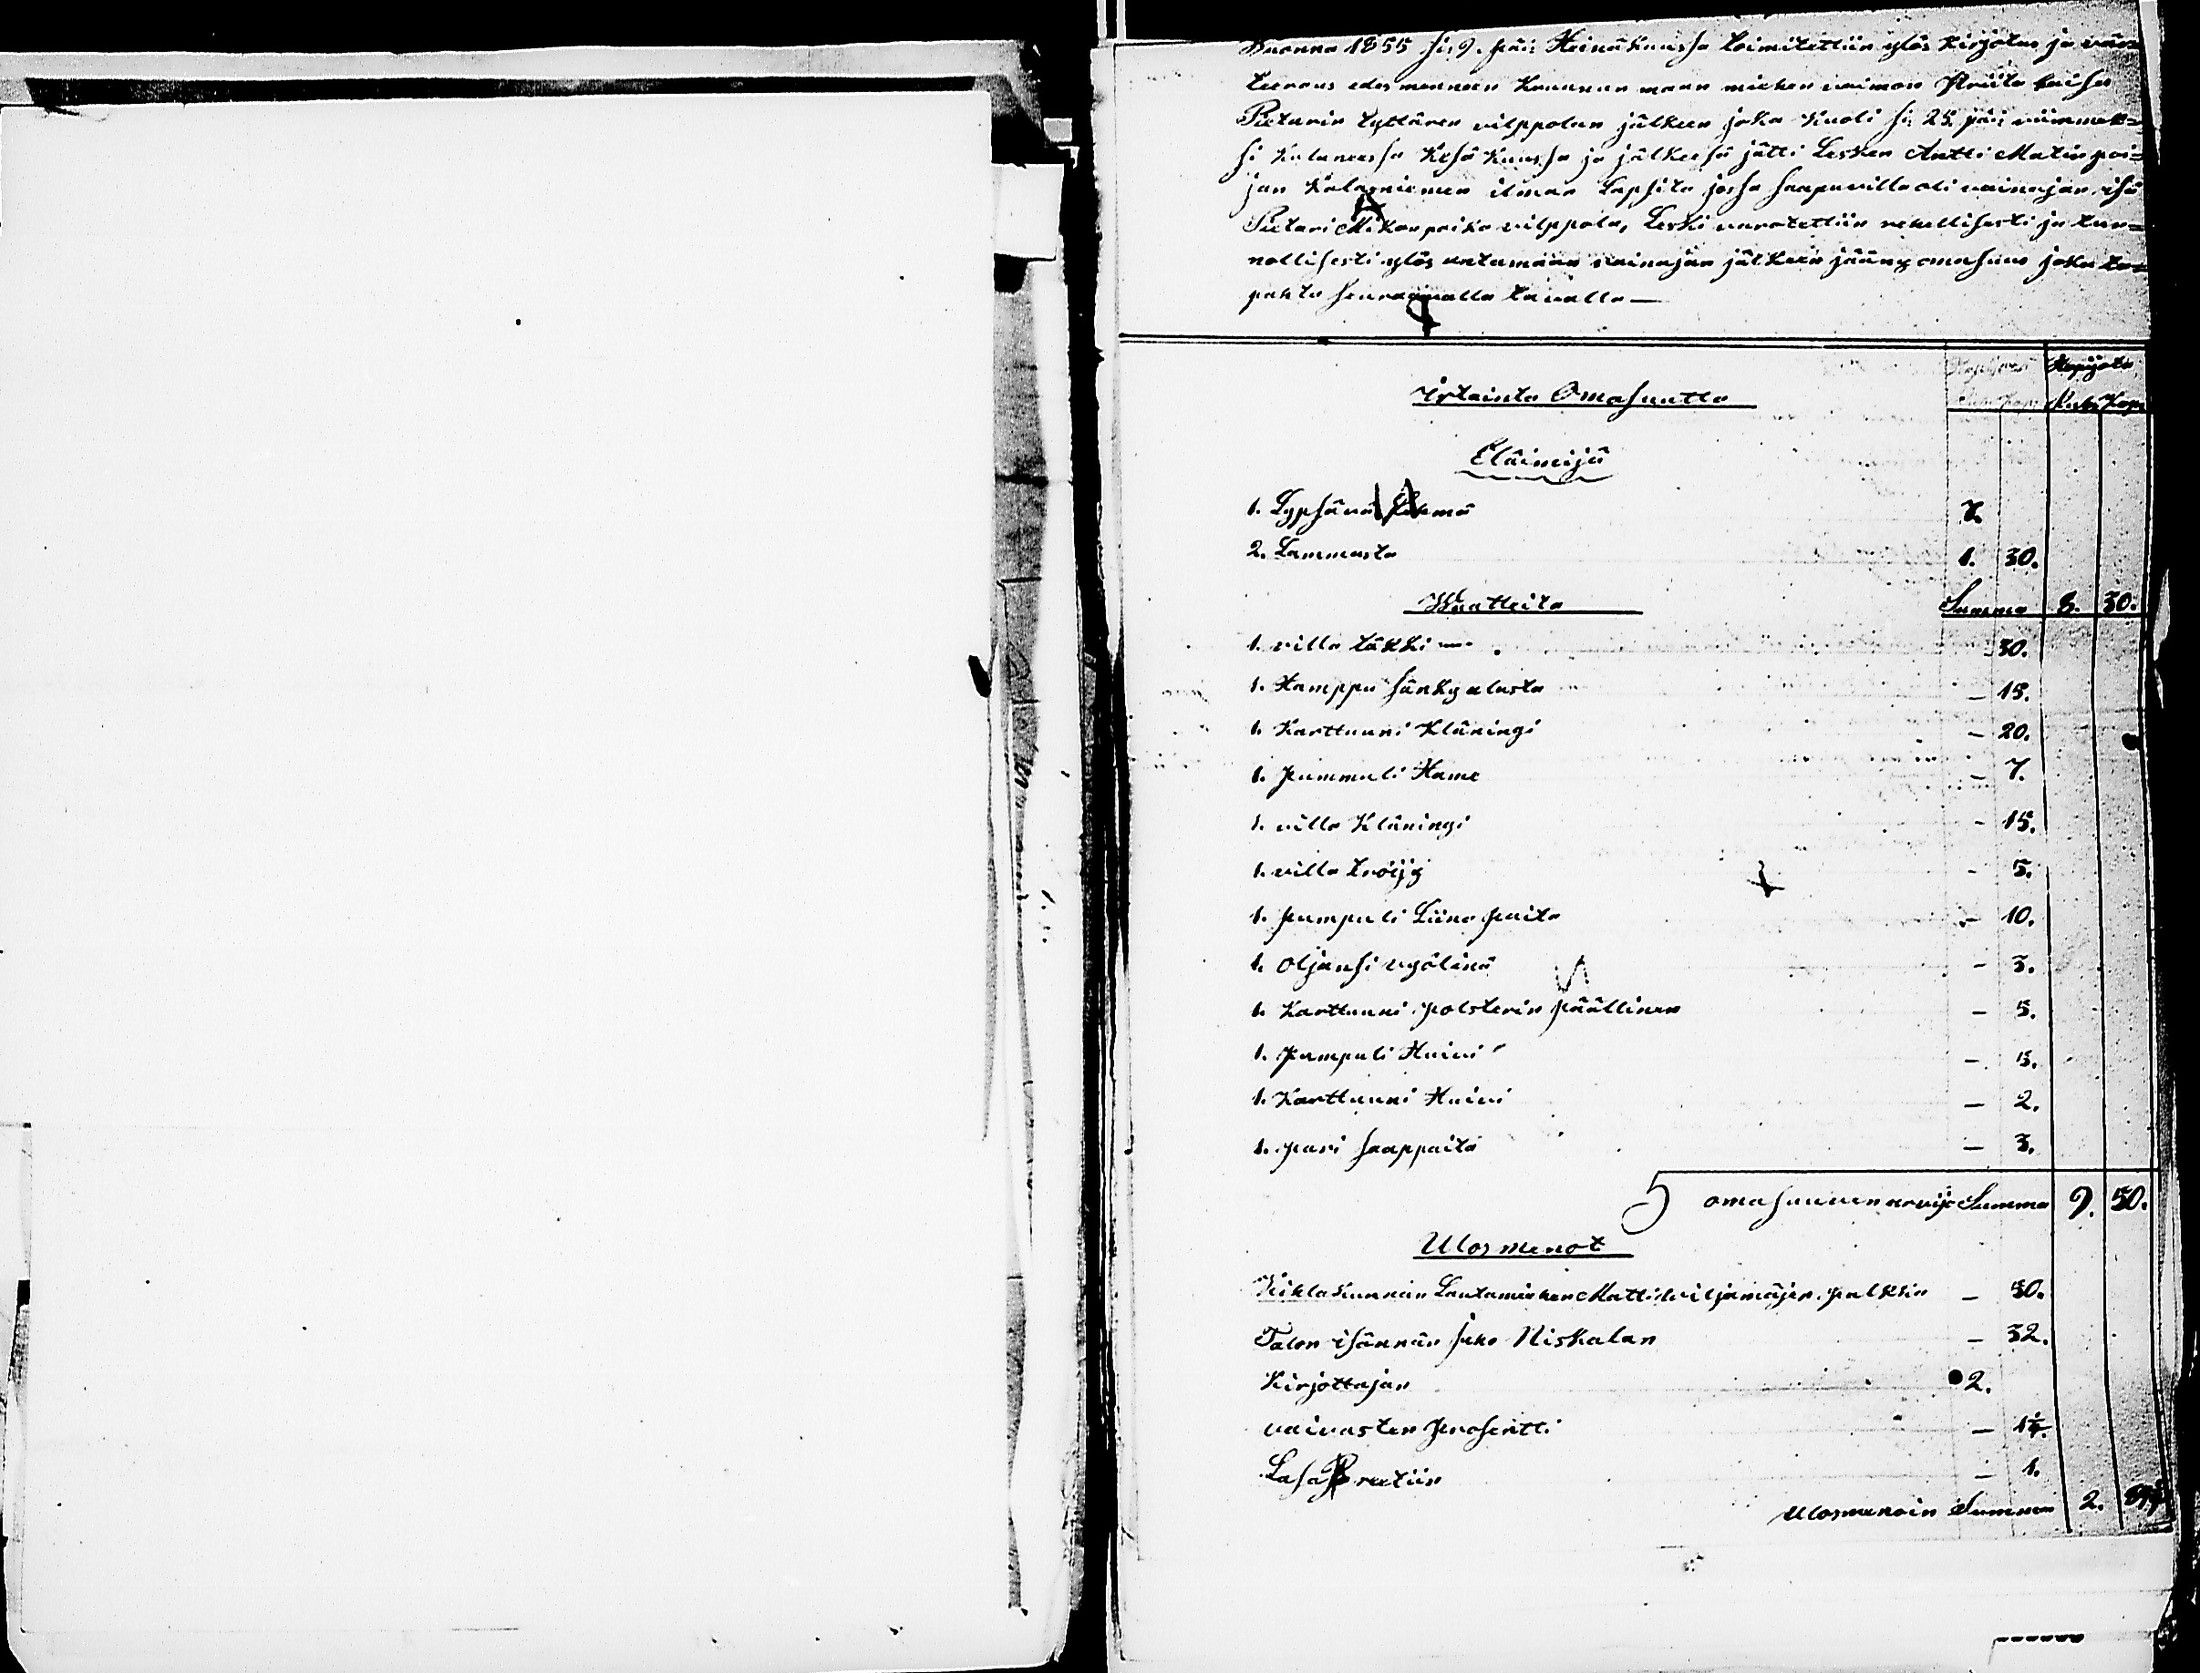 Wuonna 1855 si: 9. päi: Heinäkuussa toimitettiin ylös kirjotus ja vär=
teeraus edesmenneen Kruunun maan miehen vaimon Priita kaisa
Pietarin tyttären vilppolan jälkeen joka kuoli si: 25. päi: viimmek=
si kuluneessa Kesä kuussa ja jälkeesä jätti Lesken Antti Matin poi=
jan Kalaniemen ilman Lapsita jossa saapuvilla oli vainajan isä
Pietari Mikon poika vilppola, Leski varotettiin rehellisesti ja tun=
nollisesti ylös antamaan vainajan jälkeen jääny omasuus joka ta=
pahtu seuraavalla tavalla —
Hopijata
Rub: Kop:
Irtainta Omasuutta
Eläimijä
1. Lypsävä Lehmä 7.
2. Lammasta 1. 30.
Waatteita Summa 8. 30.
1. villa täkki — 30.
1. Hamppu sänky alusta — 15.
1. Karttuuni Kläningi — 20.
1. pummuli Hame — 7.
1. villa Kläningi — 15.
1. villa tröijy — 5.
1. pumpuli Liina paita — 10.
1. Oljansi vyölinä — 3.
1. Karttuuni polsterin päällinen — 5.
1. pumpuli Huivi — 5.
1. Karttuuni Huivi — 2.
1. pari saappaita — 3.
omasuuven arvijo Summa 9. 50.
Ulosmenot
Kihlakunnan Lautamiehen Matti viljamäjen palkka — 50.
Talon isännän Juho Niskalan — 32.
Kirjottajan 2.
vaivasten prosentti — 1¼.
Lasareetiin — 1.
Ulosmenoin Summa 2.